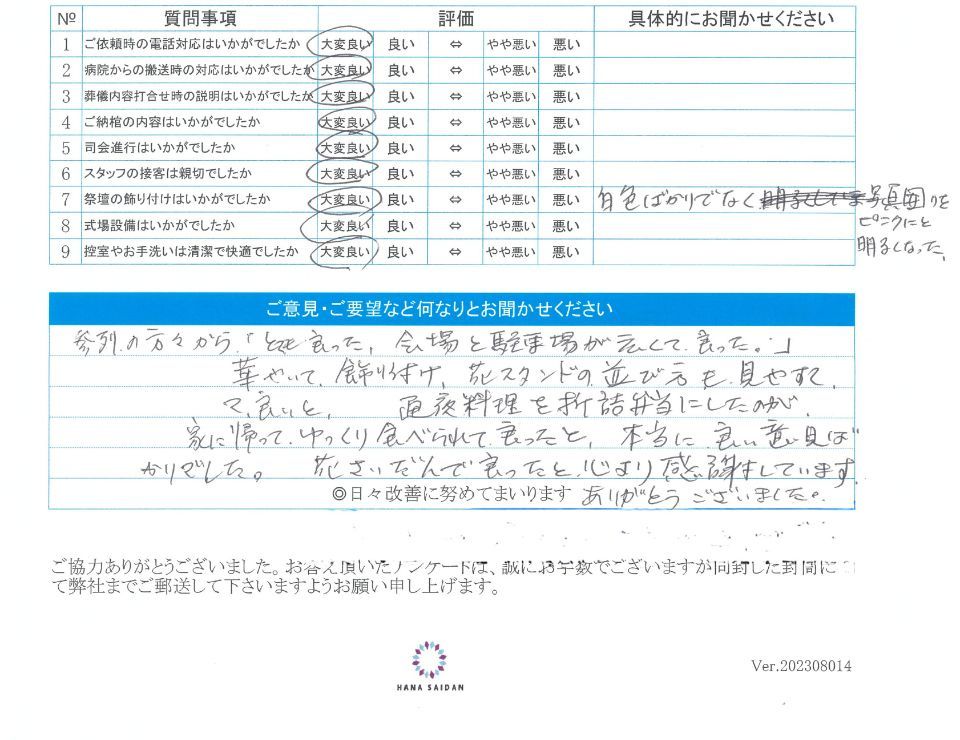 № 質問事項 評価 具体的にお聞かせください
1 ご依頼時の電話対応はいかがでしたか 大変良い 良い ⇔ やや悪い 悪い
2 病院からの搬送時の対応はいかがでしたか 大変良い 良い ⇔ やや悪い 悪い
3 葬儀内容打合せ時の説明はいかがでしたか 大変良い 良い ⇔ やや悪い 悪い
4 ご納棺の内容はいかがでしたか 大変良い 良い ⇔ やや悪い 悪い
5 司会進行はいかがでしたか 大変良い 良い ⇔ やや悪い 悪い
6 スタッフの接客は親切でしたか 大変良い 良い ⇔ やや悪い 悪い
7 祭壇の飾り付けはいかがでしたか 大変良い 良い ⇔ やや悪い 悪い 白色ばかりでなく 写真囲りを
8 式場設備はいかがでしたか 大変良い 良い ⇔ やや悪い 悪い ピンクにと
9 控室やお手洗いは清潔で快適でしたか 大変良い 良い ⇔ やや悪い 悪い 明るくなった。
ご意見・ご要望など何なりとお聞かせください
参列の方々から「とても良った。会場と駐車場が広くて良った。」
華やいで、飾り付け、花スタンドの並び方も見やすく
て、良いと、 通夜料理を折詰弁当にしたのが、
家に帰って、ゆっくり食べられて良ったと、本当に良い意見ば
かりでした。 花さいだんで良ったと心より感謝しています。
◎日々改善に努めてまいります ありがとうございました。
ご協力ありがとうございました。お答え頂いたアンケートは、誠にお手数でございますが同封した封筒に
て弊社までご郵送して下さいますようお願い申し上げます。
HANA SAIDAN
Ver.202308014